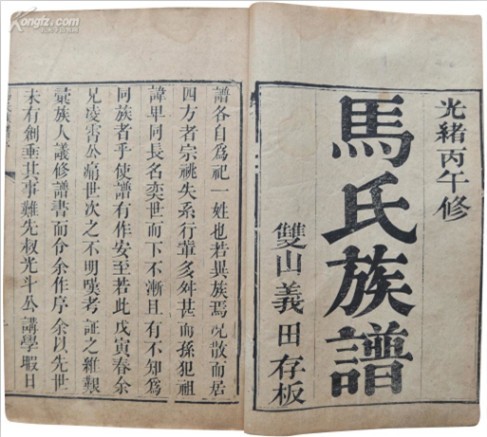 光緒丙午修
馬氏族譜
雙山義田存板
譜各自爲祀一姓也若異族焉況散而居
四方者宗祧失系行輩多舛甚而孫犯祖
諱卑同長名奕世而下不漸且有不知爲
同族者乎使譜有作安至若此戊寅春余
兄凌霄公痛世次之不明嘆考証之維艱
彙族人議修譜書而命余作序余以先世
未有創垂其事難先叔光斗公講學暇日
kongfz.com